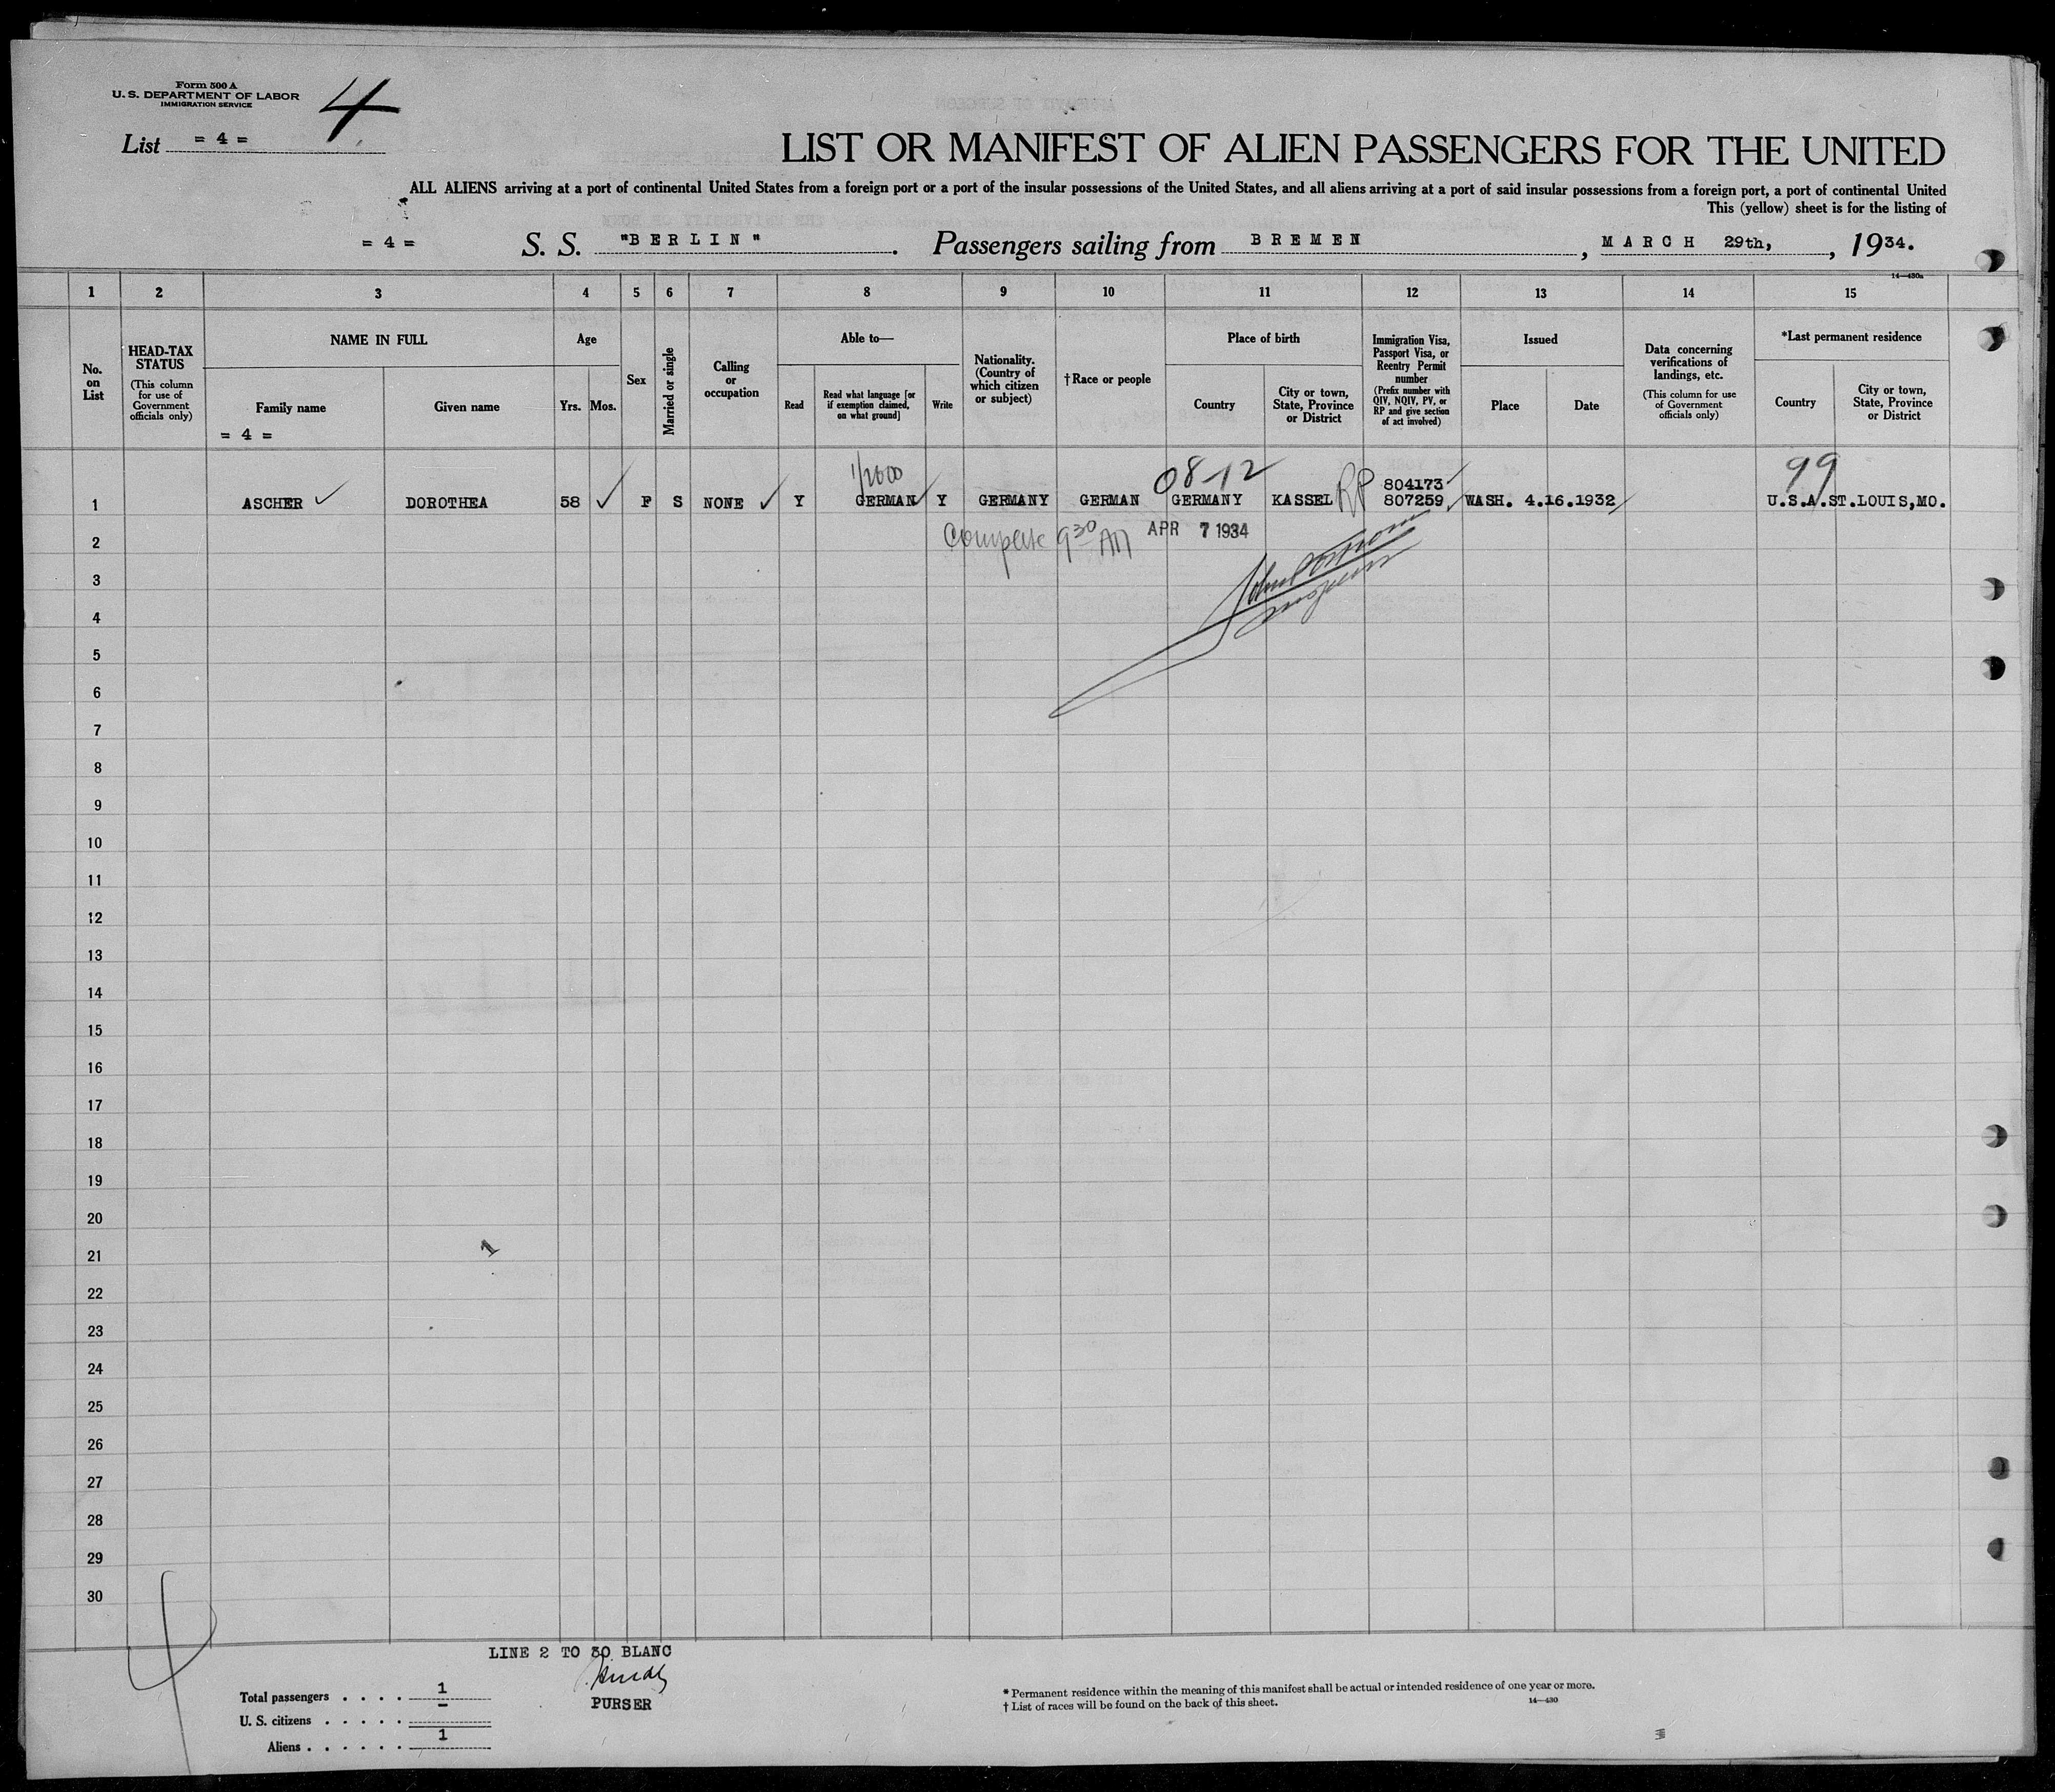 Form 500 A
U. S. DEPARTMENT OF LABOR
IMMIGRATION SERVICE
4
List = 4 =
LIST OR MANIFEST OF ALIEN PASSENGERS FOR THE UNITED
ALL ALIENS arriving at a port of continental United States from a foreign port or a port of the insular possessions of the United States, and all aliens arriving at a port of said insular possessions from a foreign port, a port of continental United
This (yellow) sheet is for the listing of
= 4 = S. S. "BERLIN". Passengers sailing from BREMEN, MARCH 29th,, 1934.
14—430a
1 2 3 4 5 6 7 8 9 10 11 12 13 14 15
No. on List
HEAD-TAX STATUS
(This column for use of Government officials only)
NAME IN FULL
Family name
Given name
= 4 =
Age
Yrs. Mos.
Sex
Married or single
Calling or occupation
Able to—
Read
Read what language [or if exemption claimed, on what ground]
Write
Nationality. (Country of which citizen or subject)
†Race or people
Place of birth
Country
City or town, State, Province or District
Immigration Visa, Passport Visa, or Reentry Permit number
(Prefix number with QIV, NQIV, PV, or RP and give section of act involved)
Issued
Place
Date
Data concerning verifications of landings, etc.
(This column for use of Government officials only)
*Last permanent residence
Country
City or town, State, Province or District
1/2600 08-12 804173 99
1 ASCHER DOROTHEA 58 F S NONE Y GERMAN Y GERMANY GERMAN GERMANY KASSEL RP 807259 WASH. 4.16.1932 U.S.A. ST.LOUIS,MO.
2 Complete 9 30 AM APR 7 1934
3
4
5
6
7
8
9
10
11
12
13
14
15
16
17
18
19
20
21
22
23
24
25
26
27
28
29
30
1
4
LINE 2 TO 30 BLANC
PURSER
Total passengers . . . . 1
U. S. citizens . . . . . –
Aliens . . . . . . 1
* Permanent residence within the meaning of this manifest shall be actual or intended residence of one year or more.
† List of races will be found on the back of this sheet.
14—430